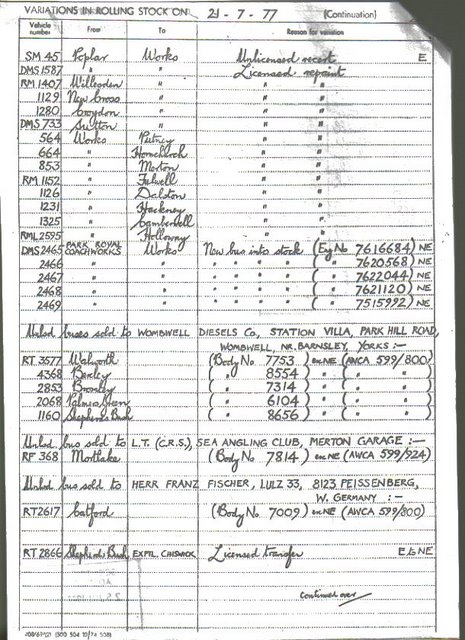 VARIATIONS IN ROLLING STOCK ON 21 - 7 - 77 (Continuation)
Vehicle number From To Reason for variation
SM 45 Poplar Works Unlicensed recert E
DMS 1587 " " Licensed repaint
RM 1407 Willesden " " "
1129 New Cross " " "
1280 Croydon " " "
DMS 733 Sutton " " "
564 Works Putney " "
664 " Hornchurch " "
853 " Merton " "
RM 1152 " Fulwell " "
1126 " Dalston " "
1231 " Hackney " "
1325 " Camberwell " "
RML 2595 " Holloway " "
DMS 2465 PARK ROYAL COACHWORKS Works New bus into stock (Eng No 7616684) NE
2466 " " " " " " ( " 7620568) NE
2467 " " " " " " ( " 7622044) NE
2468 " " " " " " ( " 7621120) NE
2469 " " " " " " ( " 7515992) NE
Unlsd buses sold to WOMBWELL DIESELS Co, STATION VILLA, PARK HILL ROAD,
WOMBWELL, NR. BARNSLEY, YORKS :-
RT 3577 Walworth (Body No 7753) ex NE (AWCA 599/800)
4368 Bexley ( " 8554) " ( " " )
2853 Bromley ( " 7314) " ( " " )
2068 Palmers Green ( " 6104) " ( " " )
1160 Shepherds Bush ( " 8656) " ( " " )
Unlsd bus sold to L.T. (C.R.S.), SEA ANGLING CLUB, MERTON GARAGE :-
RF 368 Mortlake (Body No 7814) ex NE (AWCA 599/924)
Unlsd bus sold to HERR FRANZ FISCHER, LULZ 33, 8123 PEISSENBERG,
W. GERMANY :-
RT2617 Catford (Body No 7009) ex NE (AWCA 599/800)
RT 2866 Shepherds Bush EXPTL CHISWICK Licensed transfer E & NE
Continued over